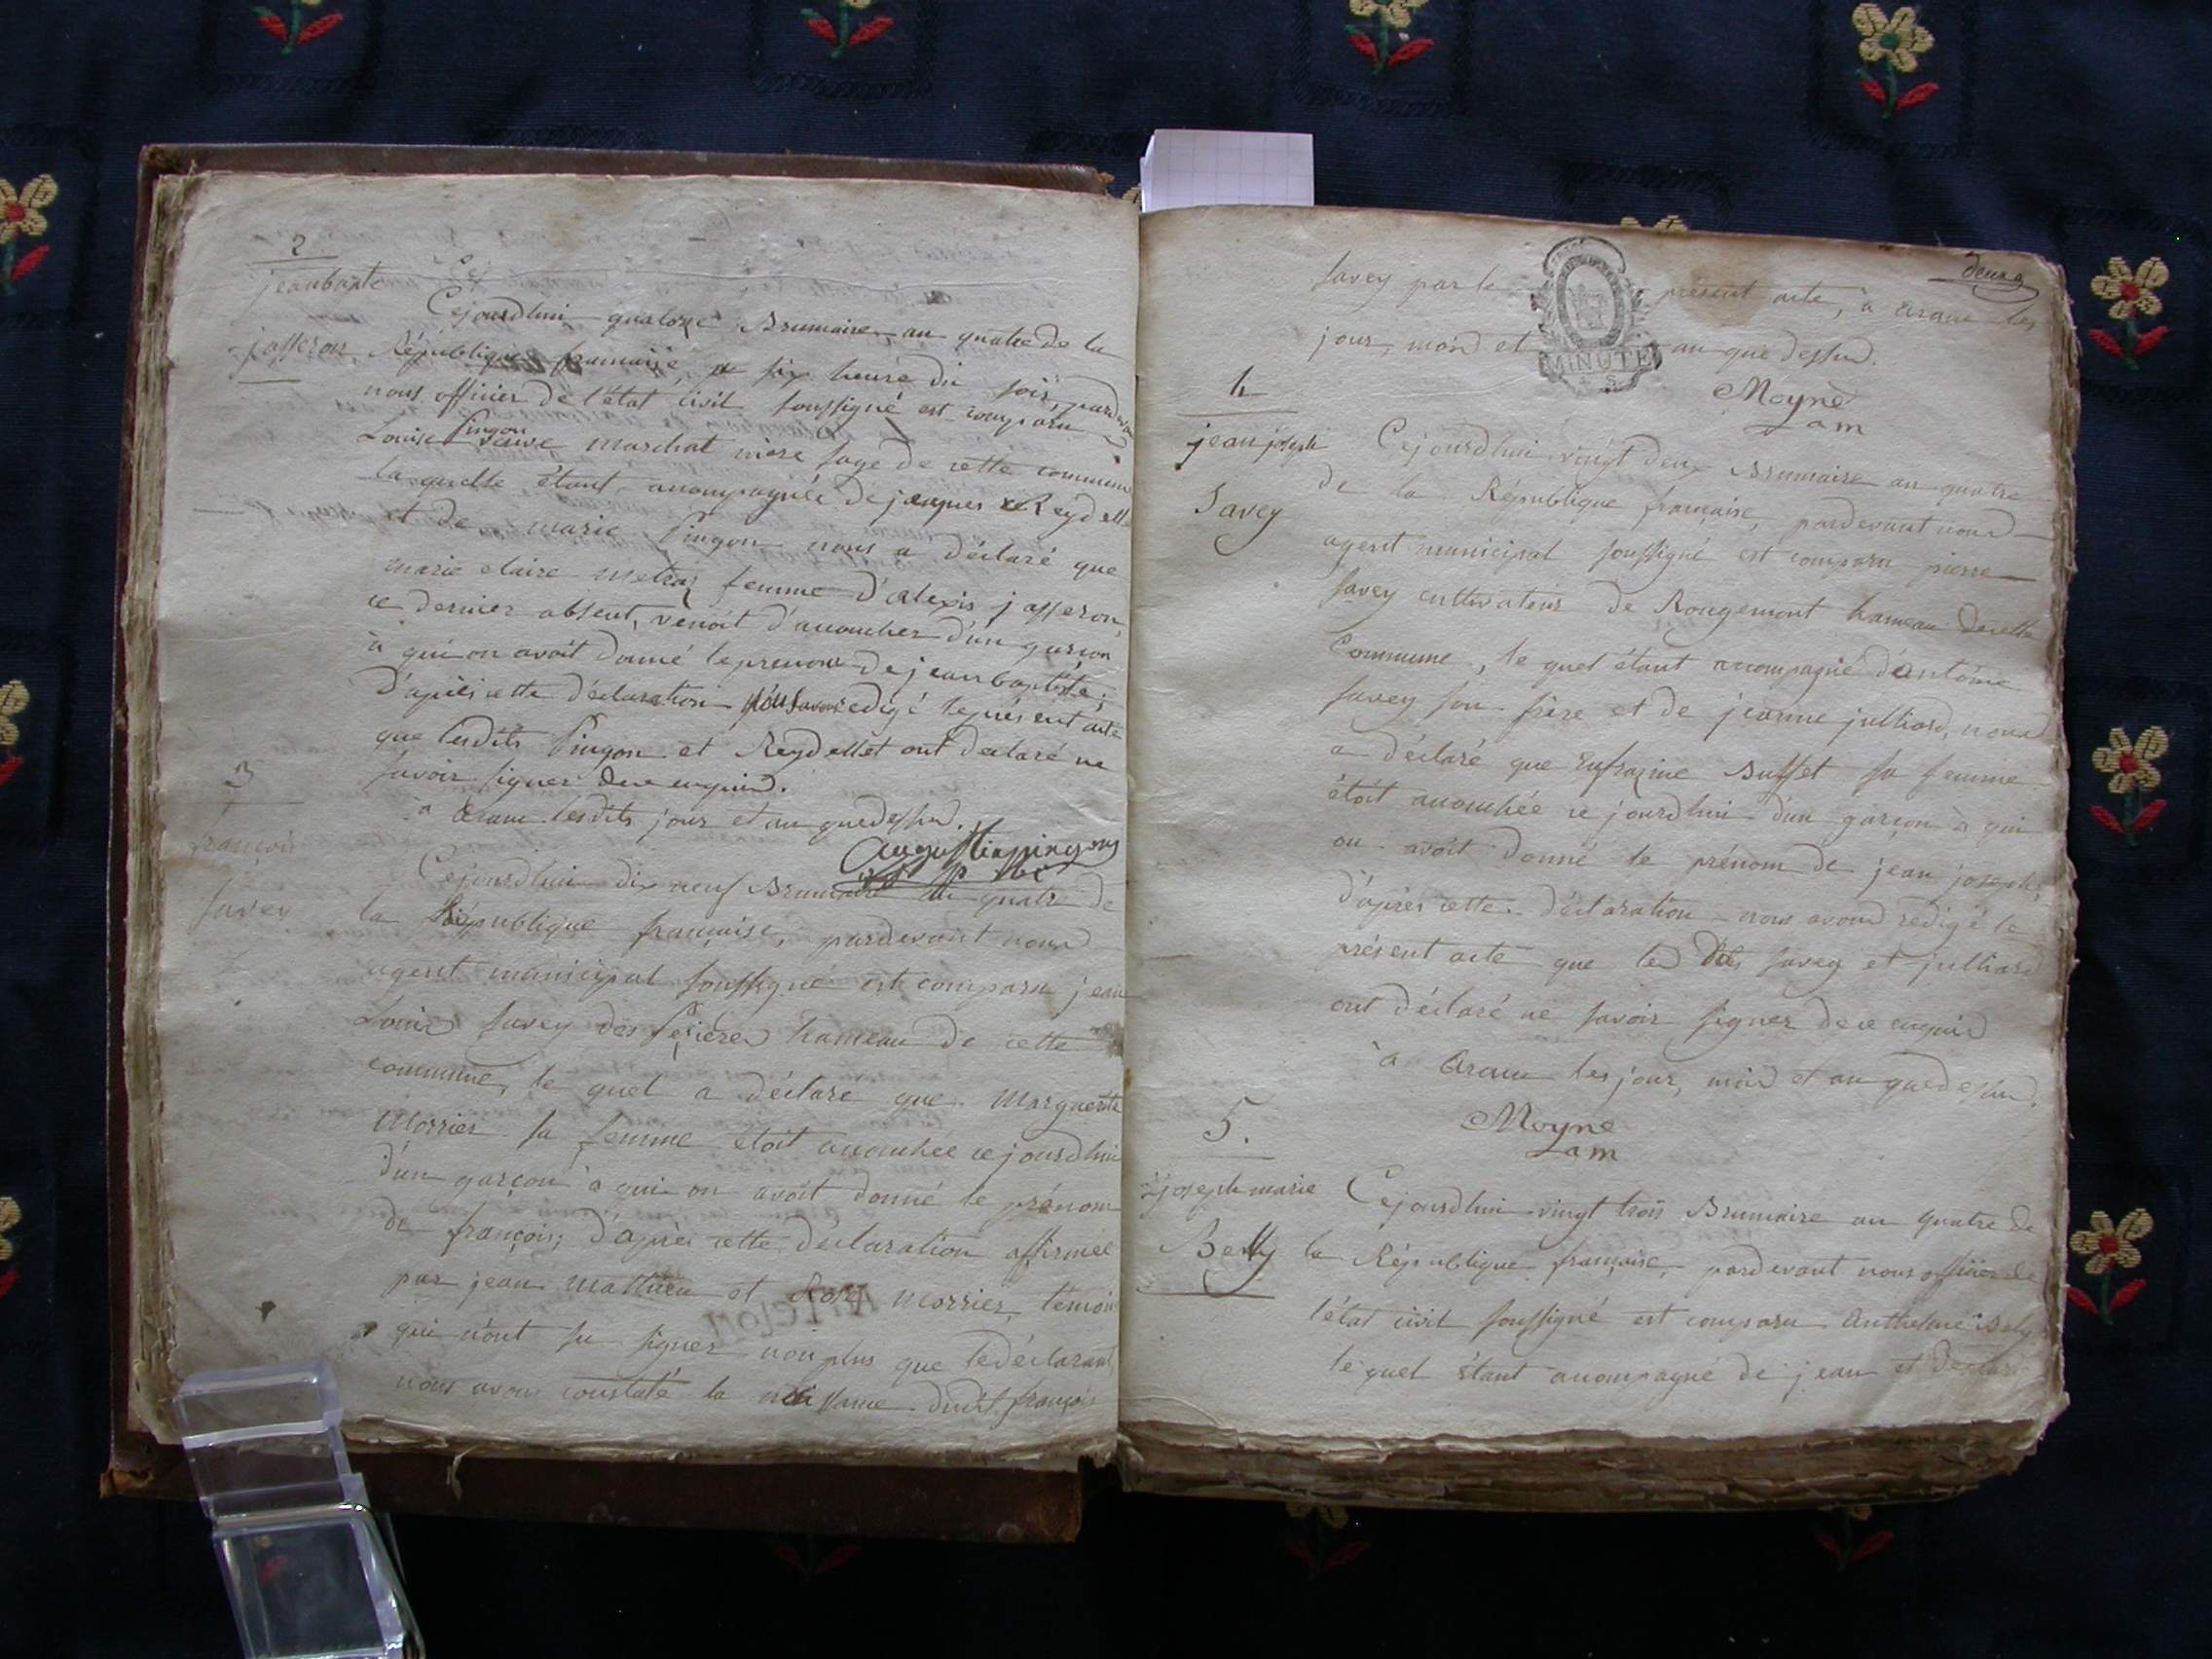 2
jeanbaptte
jasseron
Cejourdhui quatorze Brumaire, an quatre de la
République francaise, a six heure du soir, pardevant
nous officier de l'état civil soussigné est comparu
Louise Pingon veuve marchat mère sage de cette commune
la quelle étant accompagnée de jacques Reydellet
et de marie Pingon nous a déclaré que
marie claire metraz femme d'alexis jasseron,
ce dernier absent, venoit d'accoucher d'un garcon
à qui on avoit donné le prenom de jean baptiste;
D'après cette déclaration nous avons redigé le présent acte
que lesdits Pingon et Reydellet ont declaré ne
savoir signer de ce enquis.
à aranc lesdits jour et an que dessus.
augustin pingon
3
françois
Savey
Cejourdhui dix neuf Brumaire an quatre de
la République française, pardevant nous
agent municipal soussigné est comparu jean
Louis Savey des Pezieres hameau de cette
commune, le quel a déclaré que Marguerite
Morrier sa femme étoit accouchée cejourdhui
d'un garçon à qui on avoit donné le prénom
de françois; d'après cette déclaration affirmée
par jean Mathieu et Rose Morrier, témoins
qui n'ont su signer non plus que le déclarant,
nous avons constaté la naissance dudit françois
deux
Savey par le présent acte, à aranc les
jour, mois et an que dessus.
MINUTE
Moyne
am
4
jean joseph
Savey
Cejourdhui vingt deux Brumaire an quatre
de la République française, pardevant nous
agent municipal soussigné est comparu pierre
Savey cultivateur de Rougemont hameau de cette
Commune, le quel étant accompagné d'antoine
Savey son frère et de jeanne julliard, nous
a déclaré que Eufrazine Buffet sa femme
étoit accouchée cejourdhui d'un garçon à qui
on avoit donné le prénom de jean joseph;
d'après cette déclaration nous avons redigé le
présent acte que les dits Savey et julliard
ont déclaré ne savoir signer de ce enquis
à Aranc les jour, mois et an que dessus.
Moyne
am
5.
joseph marie
Belly
Cejourdhui vingt trois Brumaire an quatre de
la République française, pardevant nous officier de
l'état civil soussigné est comparu Anthelme Bely
le quel étant accompagné de jean et